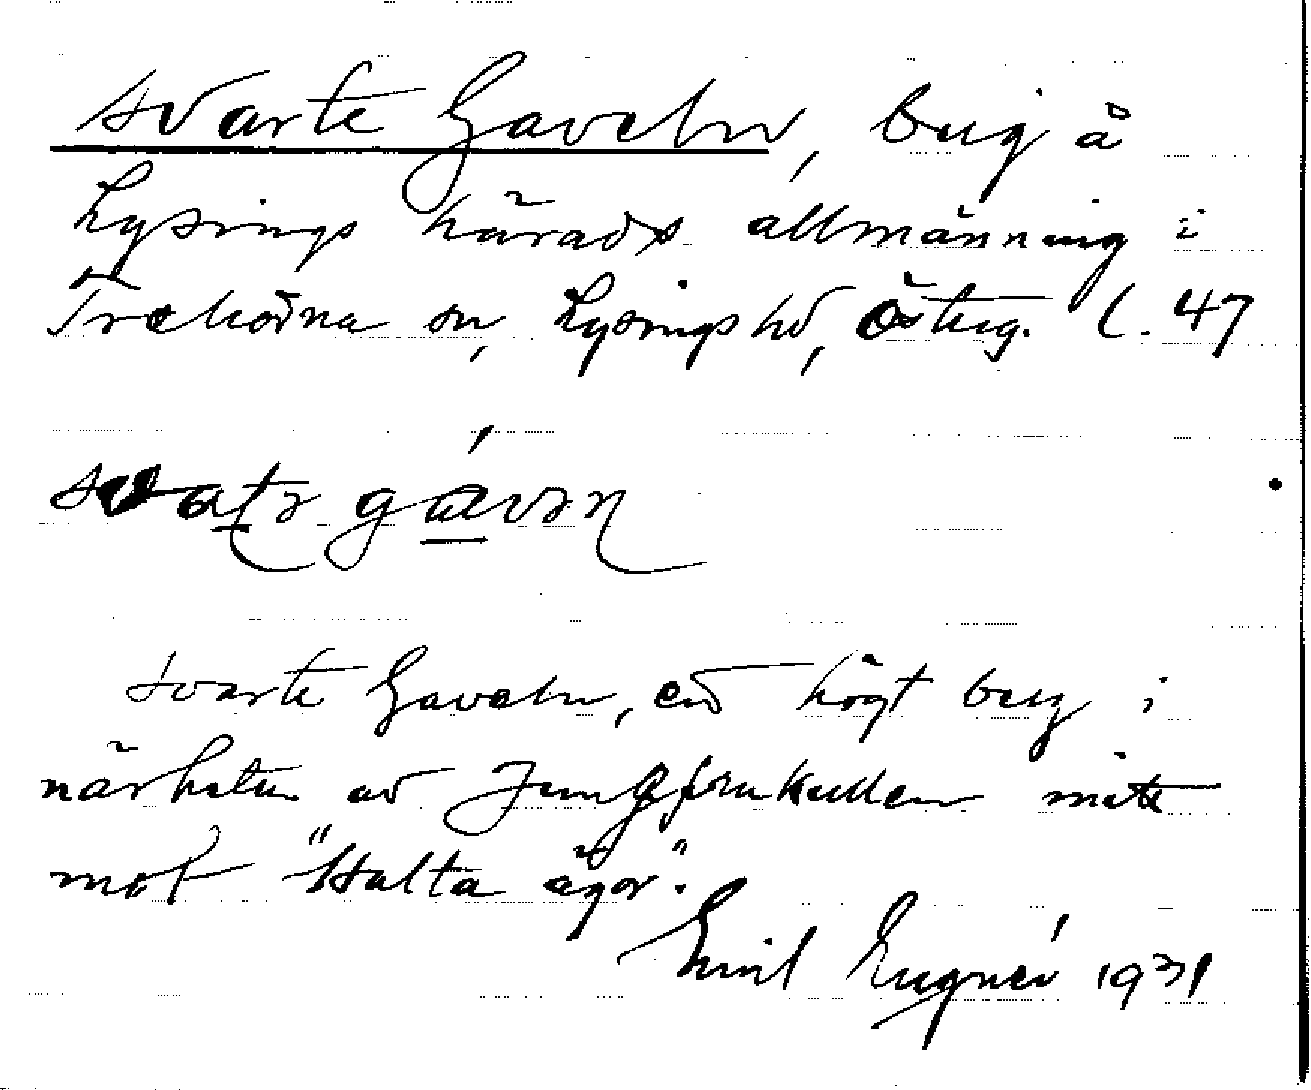 svarte Gaveln, berg å
Lysings härads allmänning i
Trehörna sn, Lysings hd, Österg. l. 47
svatə gávən
svarte Gaveln, ett högt berg i
närheten av Jungfrukullen mitt
mot "Halta ägor".
Emil Eugnér 1931